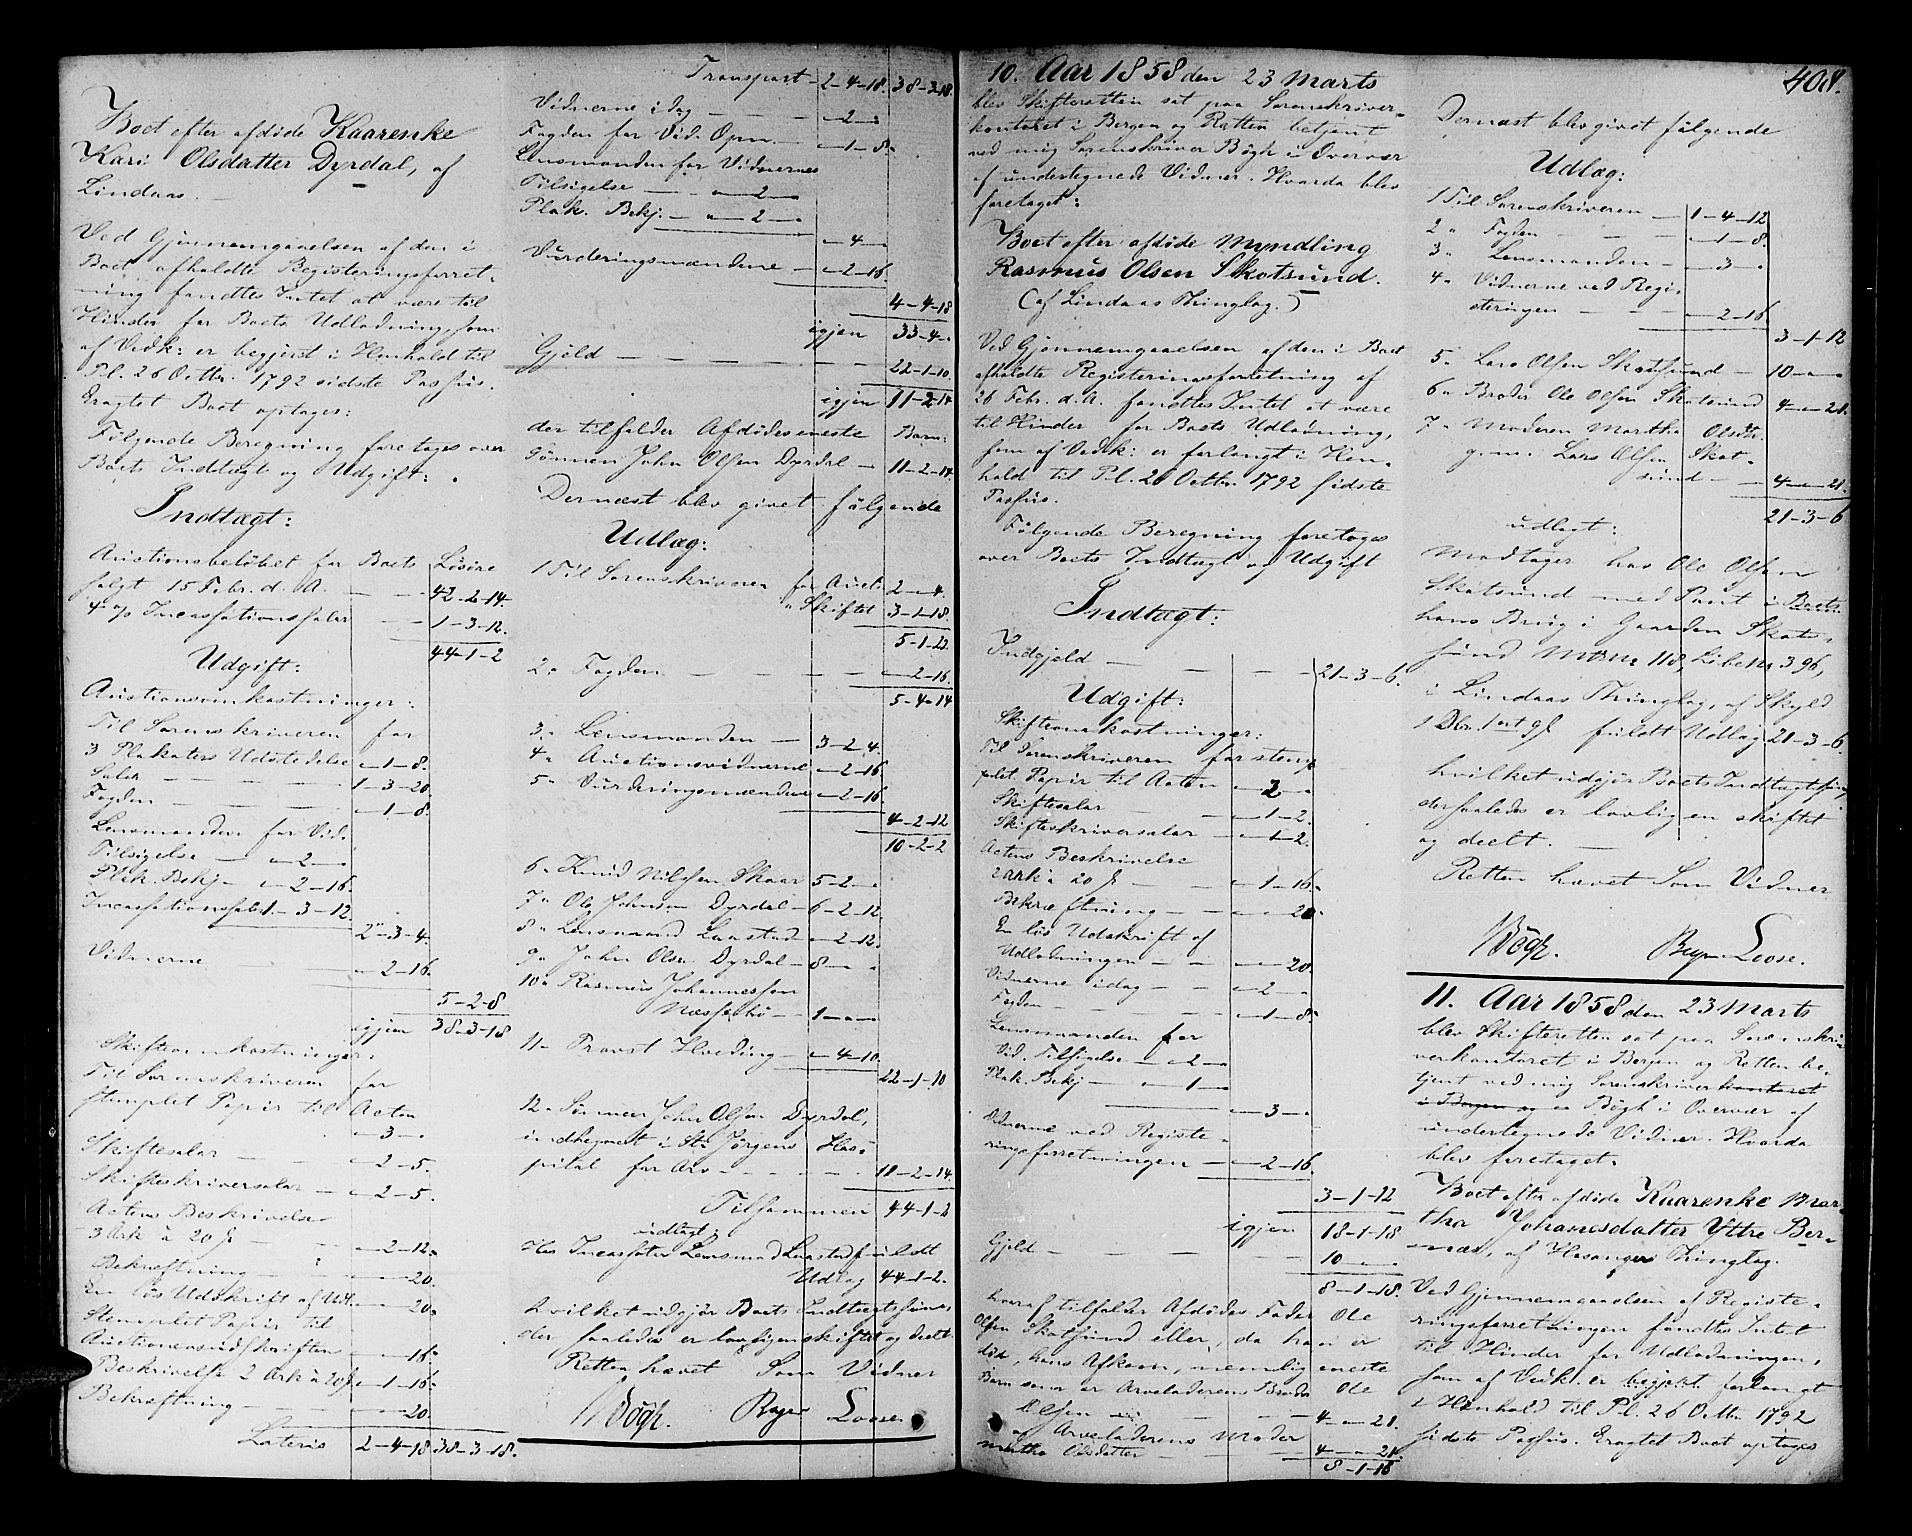 Boet efter afdöde Kaarenke
Kari Olsdatter Dyrdal, af
Lindaas.
Ved Gjennemgaaelsen af den i
Boet afholdte Registeringsforret-
ning fandtes Intet at være til
Hinder for Boets Udlodning, som
af Vedk: er begjert i Henhold til
Pl. 26 Octbr. 1792 sidste Passus.
Eragtet Boet optages:
Fölgende Beregning foretages over
Boets Indtægt og Udgift:
Indtægt:
Auctionsbelöbet for Boets Lösöre
solgt 15 Febr. d. A. — 42-2-14.
4 o/o Incassationssalar — 1-3-12.
44-1-2
Udgift:
Auctionsomkostninger:
Til Sorenskriveren for
3 Plakaters Udstedelse " - 1 - 8.
Salær — 1-3-20.
Fogden — " - 1 - 8.
Lensmanden for Vid.
Tilsigelse — " - 2 - "
Plak. Bekj. — " - 2 - 16.
Incassationssalar 1-3-12.
2-3-4.
Vidnerne — " - 2 - 16.
5-2-8
igjen 38-3-18
Skifteomkostninger:
Til Sorenskriveren for
stemplet Papir til Acten
" - 3 - "
Skiftesalar — " - 2 - 5.
Skifteskriversalar — " - 2 - 5.
Actens Beskrivelse
3 Ark à 20 ſ — " - 2 - 12.
Bekræftning — " - " - 20.
En lös Udskrift af Udl. " - " - 20.
Stemplet Papir til
Auctionsudskriften — " - " - 16.
Beskrivelse 2 Ark à 20 ſ " - 1 - 16.
Bekræftning — " - " - 20.
Lateris 2-4-18 38-3-18.
Transport 2-4-18. 38-3-18.
Vidnerne idag — " - 2 - "
Fogden for Vid. Opn. — " - 1 - 8.
Lensmanden for Vidnernes
Tilsigelse — " - 2 - "
Plak. Bekj. — " - 2 - "
" - 4 - "
Vurderingsmændene — " - 2 - 16.
4-4-18
igjen 33-4-"
Gjeld — 22-1-10.
igjen 11-2-14
der tilfalder Afdödes eneste Barn:
Sönnen John Olsen Dyrdal — 11-2-14.
Dernæst blev givet fölgende
Udlæg:
1 Til Sorenskriveren for Auct. 2-"-4.
" Skiftet 3-1-18.
5-1-22.
2 " Fogden — " - 2 - 16.
5-4-14
3 " Lensmanden — 3-2-4.
4 " Auctionsvidnerne " - 2 - 16
5 " Vurderingsmændene " - 2 - 16.
4-2-12
10-2-2
6 " Knud Nilssen Skaar 5-2-"
7 " Ole Johnsen Dyrdal — 6-2-12.
8 " Lensmand Lunstad " - 2 - 12.
9 " John Olsen Dyrdal — 8-"-"
10 " Rasmus Johannessen
Næssebö — 1-"-"
11 " Provst Hveding — " - 4 - 10.
22-1-10
12 " Sönnen John Olsen Dyrdal,
indtegnet i St. Jörgens Hos-
pital for Arv — 11-2-14.
Tilsammen 44-1-2
udlagt:
Hos Incassator Lensmand Lunstad fuldt
Udlæg 44-1-2.
hvilket udgjör Boets Indtægtssum,
der saaledes er lovligen skiftet og deelt.
Retten hævet Som Vidner
Bögh. Beyer Loose.
408.
10. Aar 1858 den 23 Marts
blev Skifteretten sat paa Sorenskriver-
kontoret i Bergen og Retten betjent
ved mig Sorenskriver Bögh i Overvær
af undertegnede Vidner. Hvorda blev
foretaget:
Boet efter afdöde Myndling
Rasmus Olsen Skotsund.
(af Lindaas Thinglag.)
Ved Gjennemgaaelsen af den i Boet
afholdte Registeringsforretning af
26 Febr. d. A. fandtes Intet at være
til Hinder for Boets Udlodning,
som af Vedk: er forlangt i Hen-
hold til Pl. 26 Octbr. 1792 sidste
Passus.
Fölgende Beregning foretages
over Boets Indtægt og Udgift
Indtægt:
Indgjeld — 21-3-6.
Udgift:
Skifteomkostninger:
Til Sorenskriveren for stemp-
plet Papir til Acten " - 2 - "
Skiftesalar — " - 1 - 2.
Skifteskriversalar — " - 1 - 2.
Actens Beskrivelse
2 Ark à 20 ſ — " - 1 - 16.
Bekræftning — " - " - 20.
En lös Udskrift af
Udlodningen — " - " - 20.
Vidnerne idag — " - 2 - "
Fogden — " - 1 - 8.
Lensmanden for
Vid. Tilsigelse — " - 2 - "
Plak. Bekj — " - 1 - "
" - 3 - "
Vidnerne ved Registe-
ringsforretningen — " - 2 - 16.
3-1-12
igjen 18-1-18
Gjeld — 10 - " - "
8-1-18.
hvoraf tilfalder Afdödes Fader Ole
Olsen Skotsund eller, da han er
död, hans Afkom, nemlig eneste
Barn som er Arveladerens Broder Ole
Olsen — 4-"-21.
og Arveladerens Moder
Martha Olsdatter — 4-"-21.
8-1-18
Dernæst blev givet fölgende
Udlæg:
1 Til Sorenskriveren — 1-4-12
2 " Fogden — " - 1 - 8.
3 " Lensmanden — " - 3 - "
4 " Vidnerne ved Regi-
steringen — " - 2 - 16.
3-1-12
5 " Lars Olsen Skotsund — 10-"-"
6 " Broder Ole Olsen Skotsund 4-"-21.
7 " Moderen Martha Olsdtr.
g. m. Lars Olsen Skot-
sund — 4-"-21.
21-3-6
udlagt:
Modtager hos Ole Olsen
Skotsund med Pant i Boets
hans Brug i Gaarden Skot-
sund M. No. 118, Löbe No. 396,
i Lindaas Thinglag, af Skyld
1 Dlr. 1 ort 9 ſ fuldt Udlæg 21-3-6.
hvilket udgjör Boets Indtægtssum,
der saaledes er lovligen skiftet
og deelt.
Retten hævet Som Vidner
Bögh. Beyer Loose.
11. Aar 1858 den 23 Marts
blev Skifteretten sat paa Sorenskri-
verkontoret i Bergen og Retten be-
tjent ved mig Sorenskriver kontoret
i Bergen og Bögh i Overvær af
undertegnede Vidner. Hvorda
blev foretaget.
Boet efter afdöde Kaarenke Mar-
tha Johanesdatter Yttre Ber-
næs, af Hosangers Thinglag.
Ved Gjennemgaaelsen af Registe-
ringsforretningen fandtes Intet
til Hinder for Udlodningen,
som af Vedk. er begjert forlangt
i Henhold til Pl. 26 Octbr 1792
sidste Passus. Eragtet Boet optages